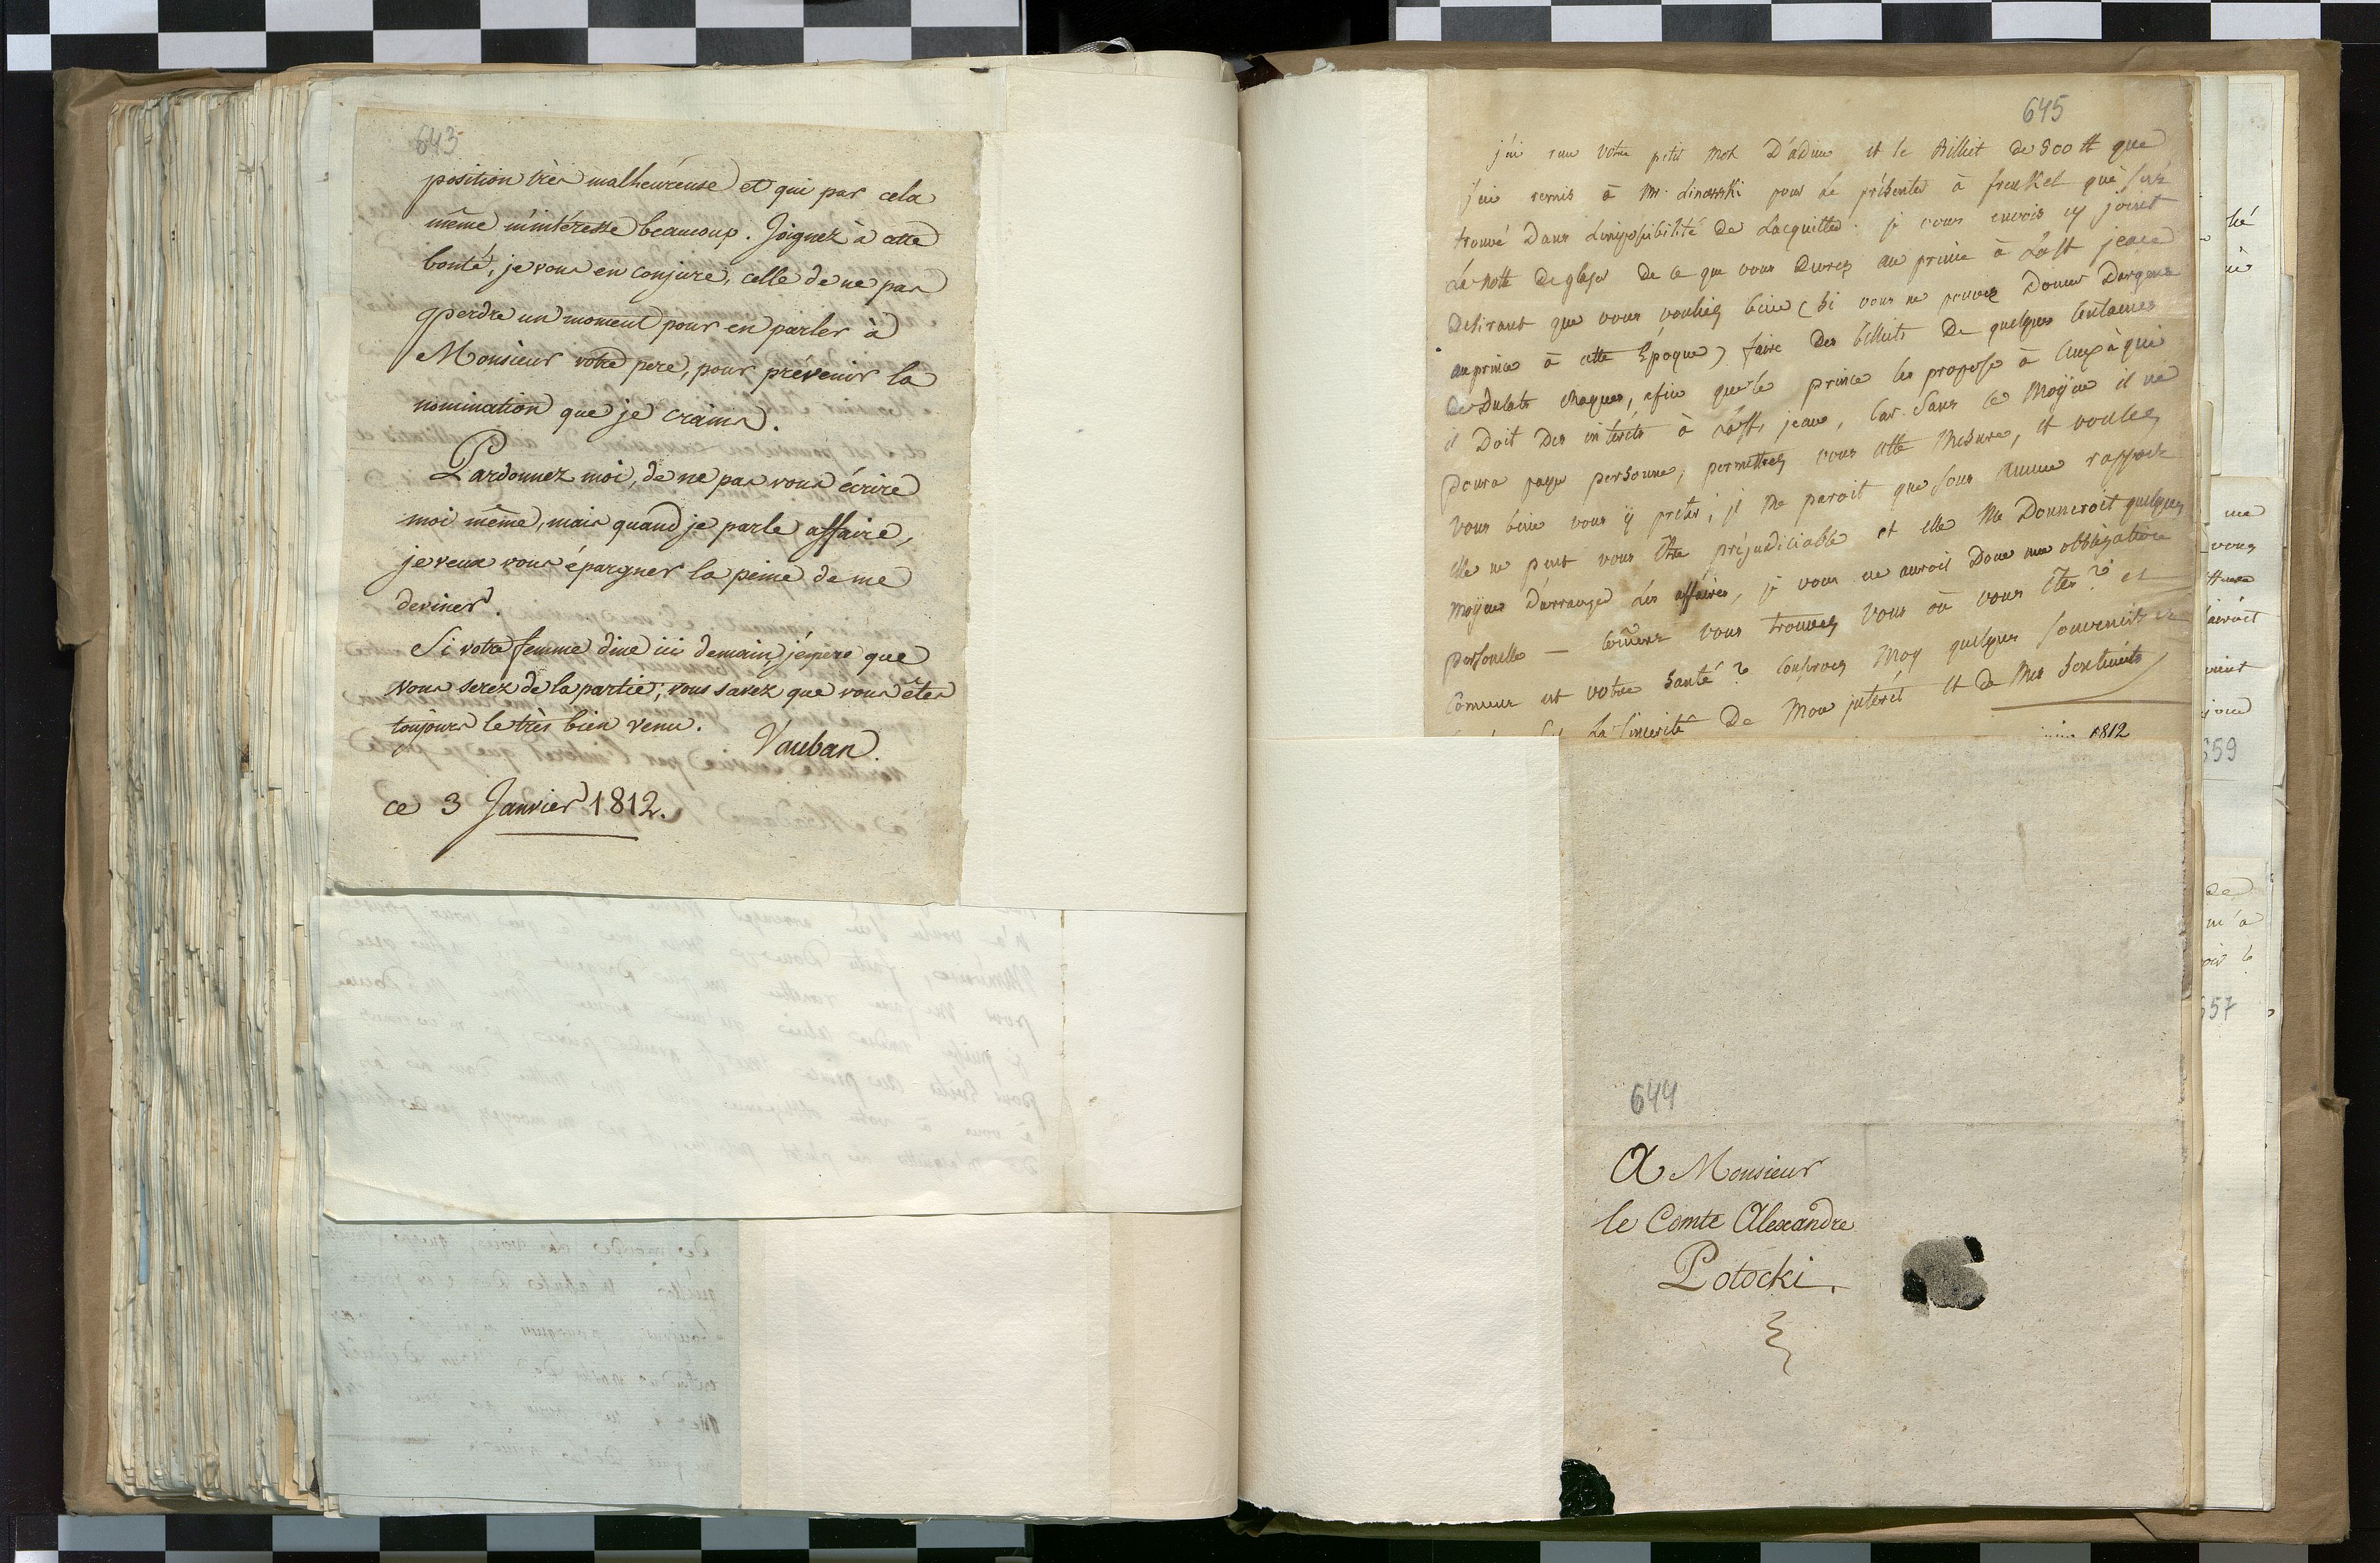 643
position très malheureuse et qui par cela
même m'intéresse beaucoup. Joignez à cette
bonté, je vous en conjure, celle de ne pas
perdre un moment pour en parler à
Monsieur votre pere, pour prévenir la
nomination que je crains.
Pardonnez moi, de ne pas vous écrire
moi même, mais quand je parle affaire,
je veux vous épargner la peine de me
deviner.
Si votre femme dine ici demain, j'éspere que
vous serez de la partie; vous savez que vous êtes
toujours le très bien venu.
Vauban.
ce 3 Janvier 1812.
645
j'ai reçu votre petit mot D'adieu et le Billiet de 800 # que
j'ai remis à Mr. Linowski pour le présenter à frenkel qui s'est
trouvé Dans Limpossibilité de Lacquitter. je vous envois cy joint
La notte De glaser De ce que vous Devrez au prince à La St jean
Desirant que vous vouliez bien (si vous ne pouvez Donner Dargent
au prince à cette Epoque) faire Des billiets De quelques Centaines
De Dukats chaques, afin que le prince les propose à Ceux à qui
il Doit Des intérêts à La St. jean, Car Sans Ce Moÿen il ne
poura payer personne, permettrez vous cette Mesure, et voulez
Vous bien vous ÿ preter; il Me paroit que sous Aucun rapport
elle ne peut vous être préjudiciable et elle Me Donneroit quelques
Moÿens D'arranger Les affaires, je vous en aurois Donc une obbligation
personelle — Comment Vous trouvez Vous où vous êtes? et
Comment est votre Santé? Conservez Moy quelques Souvenirs et
La Sincerité De Mon jnterêt et De Mes Sentiments
1812
644
A Monsieur
le Comte Alexandre
Potocki.
hé
me
vous
airoit
659
de
m'a
657